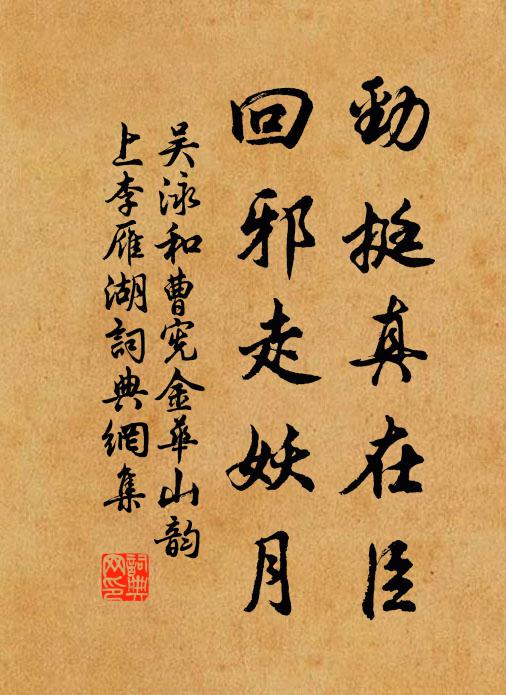 勁挺真在臣
回邪走妖月
吴泳和曹宪金華山韵
上李雁湖詞典網集
詞典网印